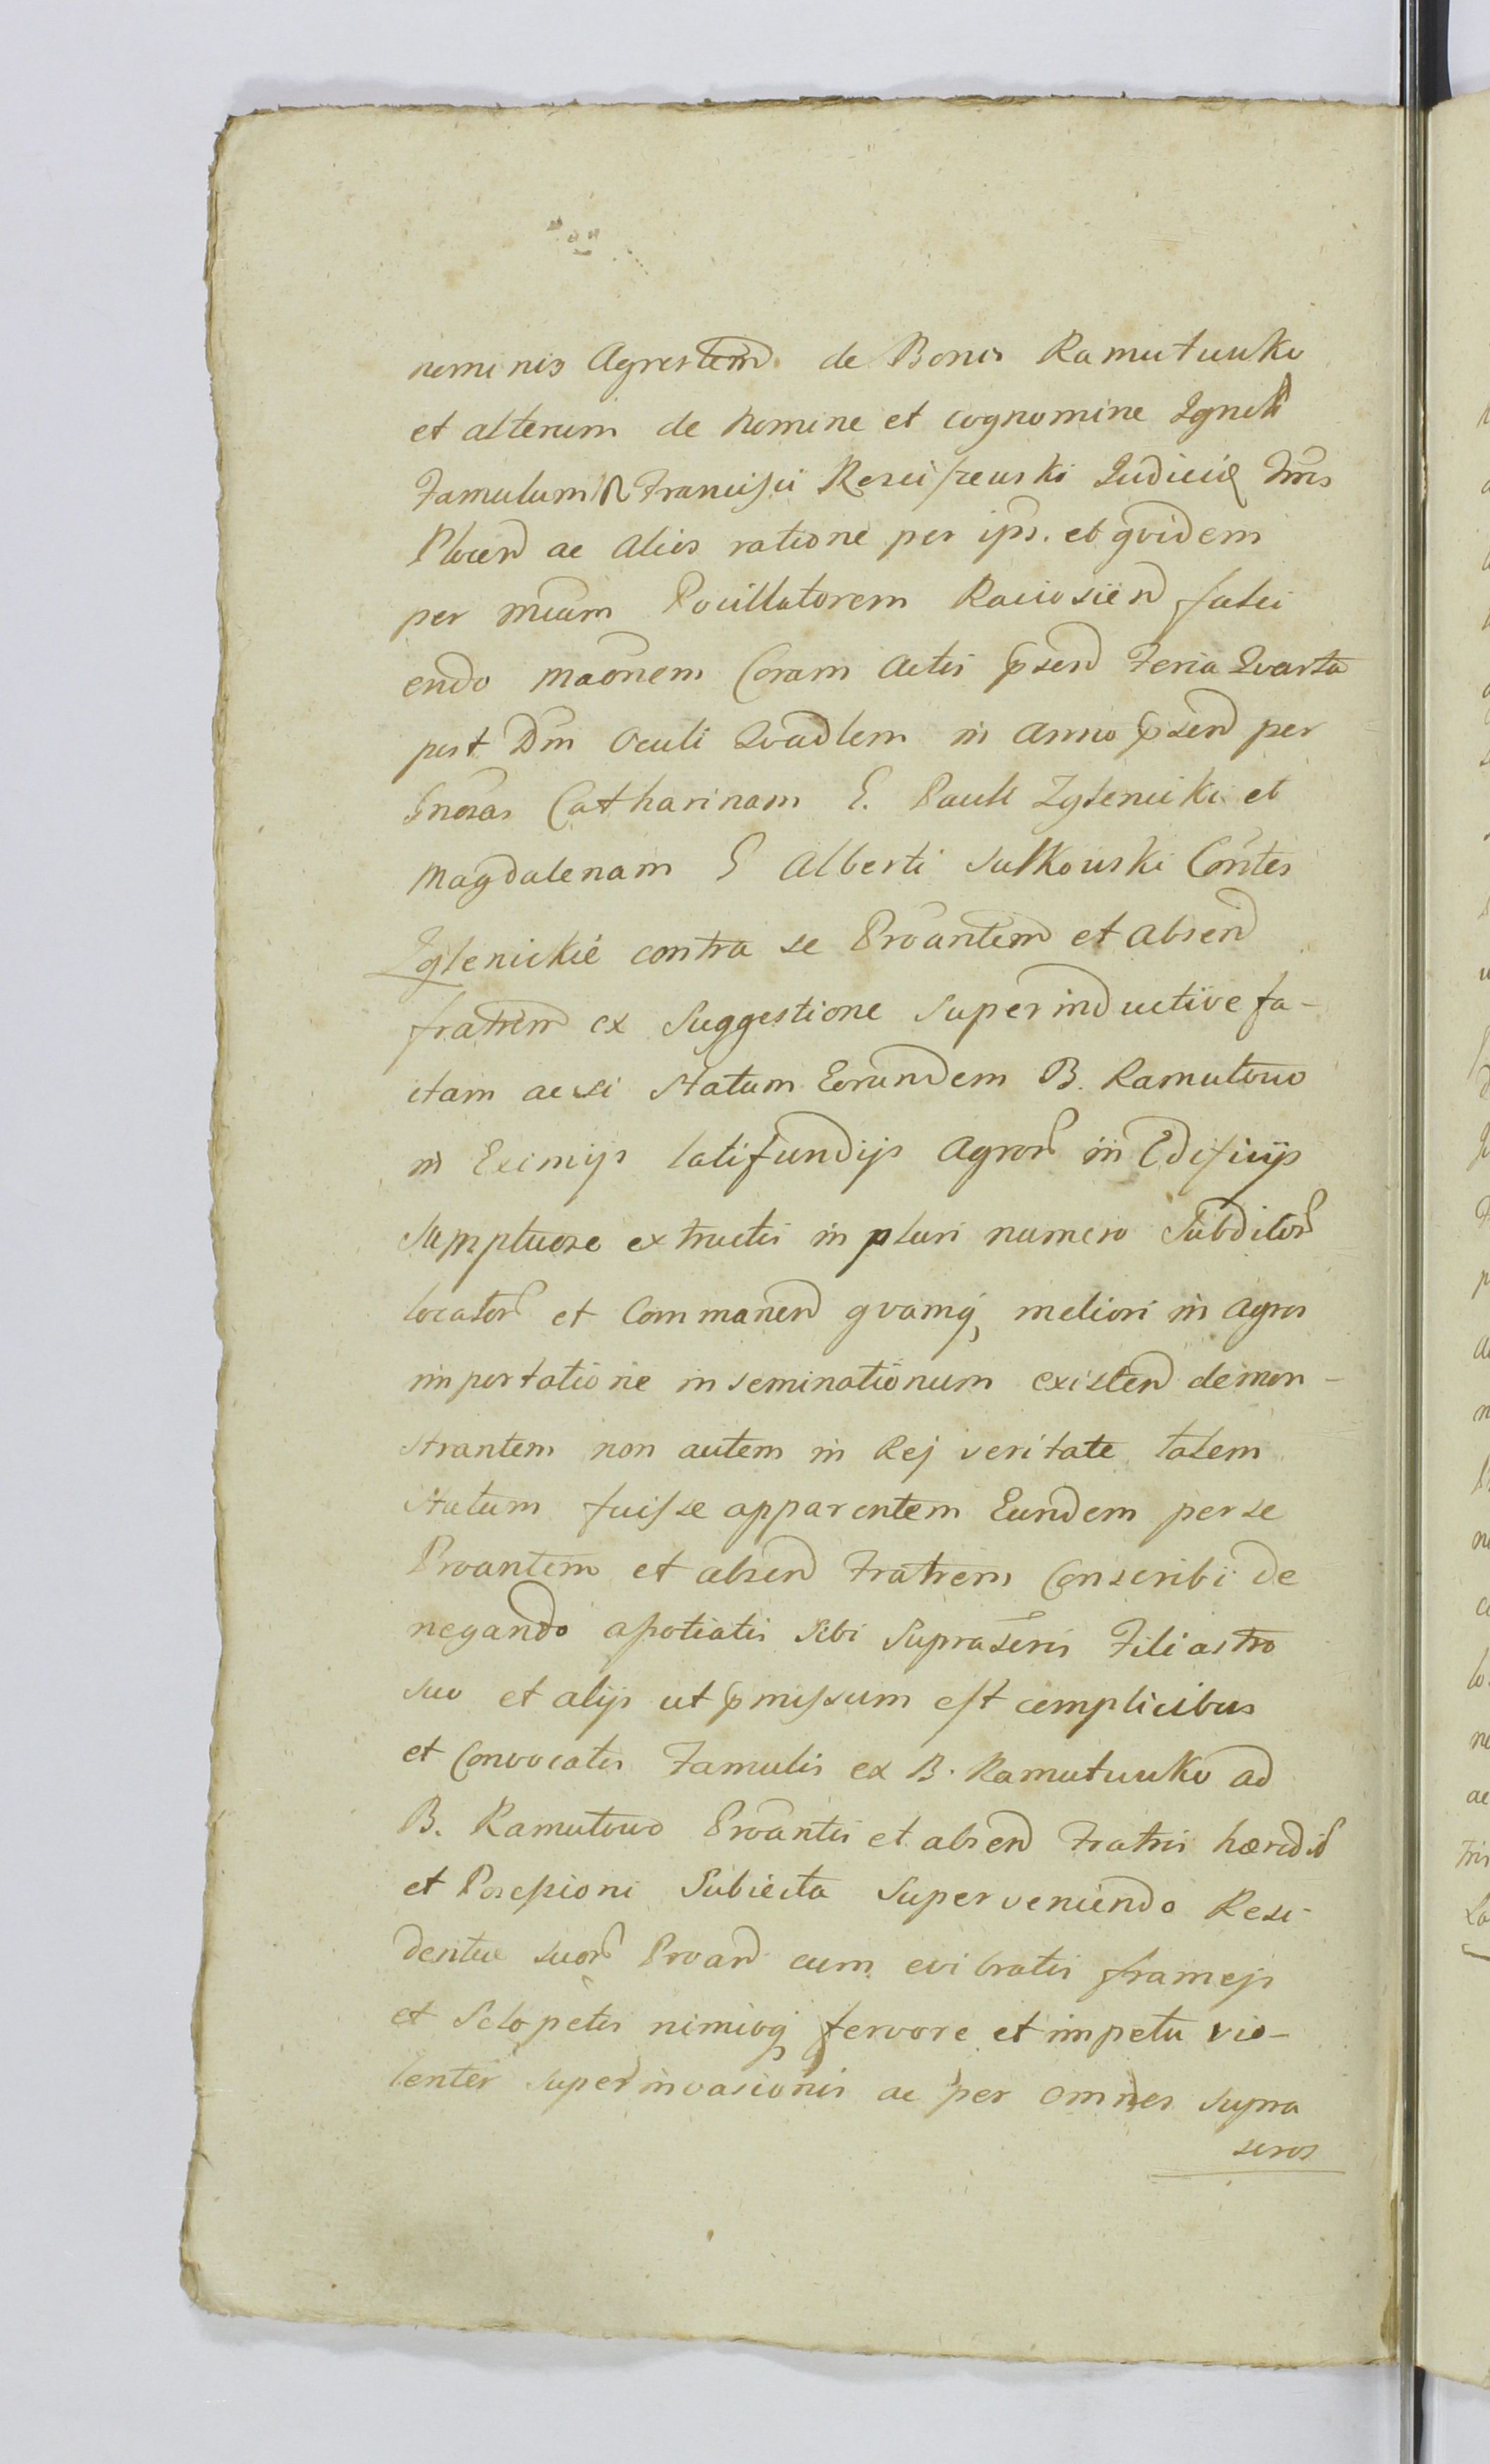 nominis Agrestem de Bonis Ramutuwko
et alterum de nomine et cognomine Ignoti
Famulum Francisci Resciszewski Judicis
Plocen ac alios ratione per ips. et qvidem
per Pocillatorem Raciosien falsi
endo maonem Coram Actis psen Feria Qvarta
post Dm Oculi Qvadlem in Anno psen per
Gnosas Catharinam G. Pauli Zglenicki et
Magdalenam G Alberti Sulkowski Contes
Zglenickie contra se Proantem et absen
fratrem ex Suggestione Superinductive fa-
ctam ac si statum Eorundem B. Ramutowo
in Eximijs latifundijs Agror in Edificijs
Sumptuose extructis in pluri numero Subditor
locator et Commanen qvamq, meliori in agros
importatione inseminationum existen demon-
strantem non autem in Rej veritate talem
Statum fuisse apparentem Eundem per se
Proantem et absen Fratrem Conscribi de
negando asotiatis Sibi Suprascris Filiastro
suo et alijs ut pmissum est complicibus
et Convocatis Famulis ex B. Ramutuwko ad
B. Ramutowo Proantis et absen Fratris hoered
et Possessioni Subiecta Superveniendo Resi-
dentiae suor Proan cum evibratis framejs
et Sclopetis nimioq fervore et impetu vio-
lenter superinvasionis ac per omnes supra
scros